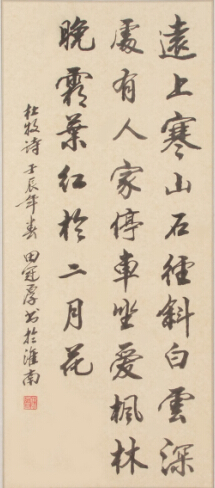 遠上寒山石徑斜白雲深
處有人家停車坐愛楓林
晚霜葉紅於二月花
杜牧诗壬辰年春田冠厚书於淮南